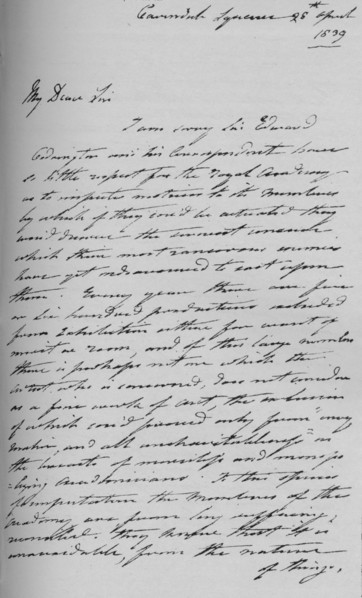 Cavendish Square 25th April
1839
My Dear Sir
I am sorry Sir Edward
Codrington and his Correspondent have
so little respect for the Royal Academy
as to impute motives to its Members
by which if they could be actuated they
would deserve the severest censure
which their most rancorous enemies
have yet endeavoured to cast upon
them. Every year there are five
or six hundred productions excluded
from Exhibition either for want of
merit or room, and of this large number
there is perhaps not one which the
artist who is concerned, does not consider
as a fine work of art, the exclusion
of which could proceed only from envy
and all uncharitableness in
the hearts of merciless and monopo
-lizing academicians. To this species
of imputation the Members of the
Academy are from long suffering,
reconciled. They know that it is
unavoidable, from the nature
of things,